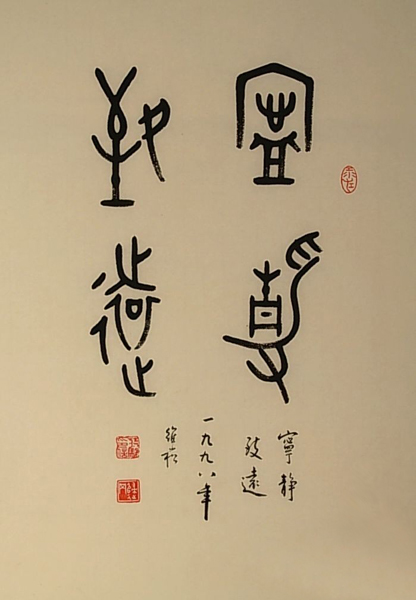 寧靜
致遠
寧靜
致遠
一九九八年
維崧